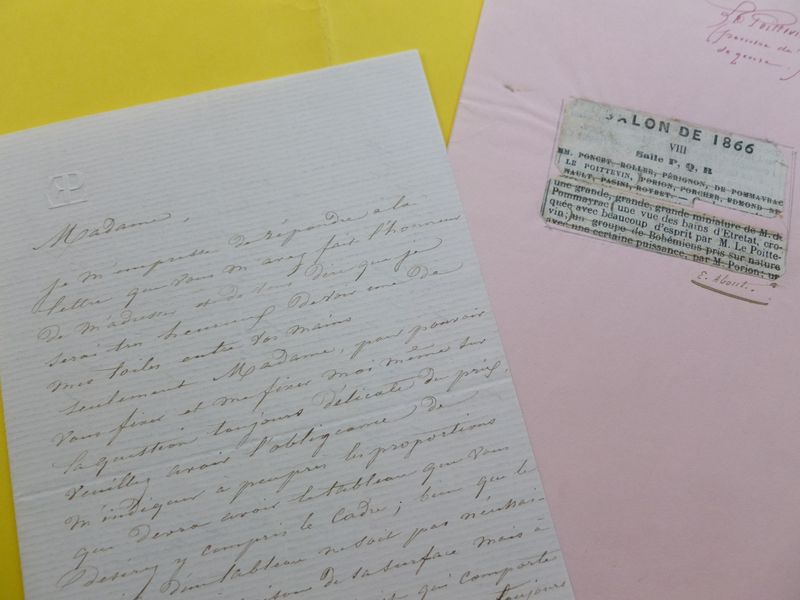 Madame,
Je m'empresse de répondre a la
lettre que vous m'avez fait l'honneur
de m'adresser et de vous dire que je
serai tres heureux de voir une de
mes toiles entre vos mains
seulement Madame, pour pouvoir
vous fixer et me fixer moi même sur
la question toujours délicate du prix,
veuillez avoir l'obligeance de
m'indiquer à peu près les proportions
que devra avoir le tableau que vous
désirez y compris le cadre; bien que le
d'un tableau ne soit pas nécessai-
de sa surface mais à
qui comporte
toujours
Le Poittevin
peintre de
de genre.
SALON DE 1866
VIII
Salle P, Q, R
MM. PONCET, ROLLER, PÉRIGNON, DE POMMAYRAC
LE POITTEVIN, PORION, PORCHER, EDMOND
NAULT, PASINI, ROYBET. —
une grande, grande, grande miniature de M. de
Pommayrac; une vue des bains d'Étretat, cro-
quée avec beaucoup d'esprit par M. Le Poitte-
vin; un groupe de Bohémiens pris sur nature
avec une certaine puissance, par M. Porion; un
E. About.